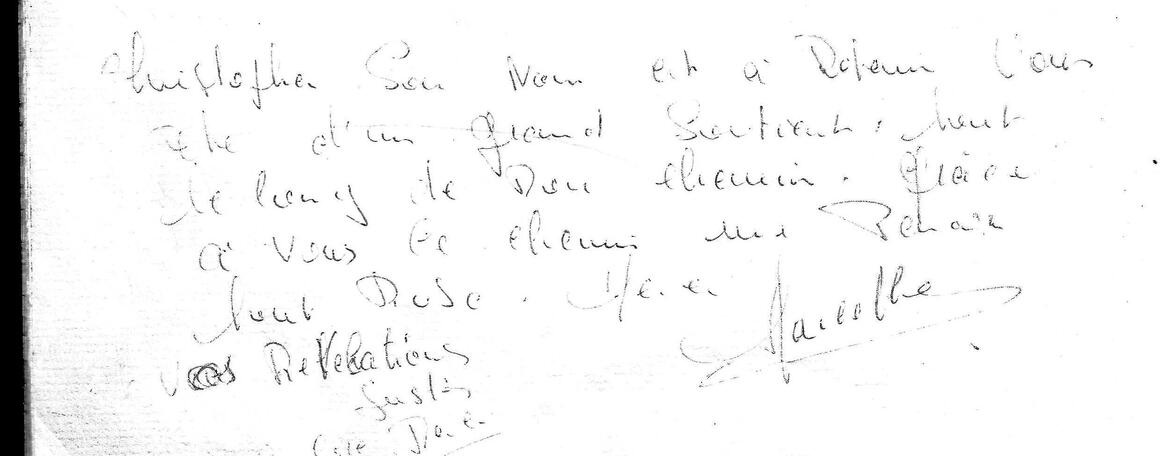 Christopher Son Nom est à Retenir Vous
Ete d'un grand Soutient, tout
le long de Don chemin. Grâce
à Vous le chemin me Parait
tout Rose. Merci Marcelle
vos Révélations
Justes